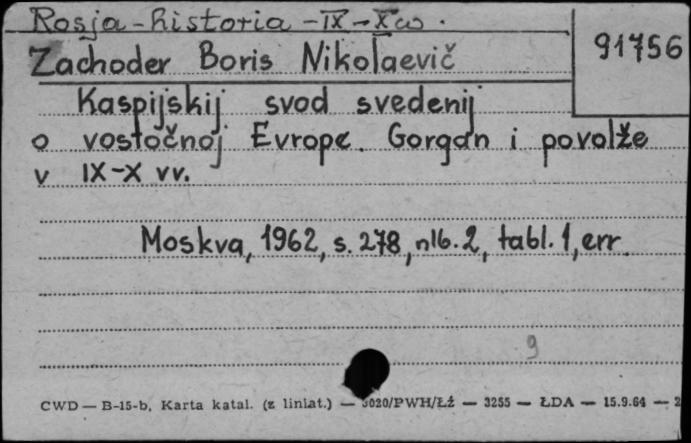 Rosja - historia - IX - X w.
91756
Zachoder Boris Nikolaevič
Kaspijskij svod svedenij
o vostočnoj Evrope. Gorgan i povolže
v IX-X vv.
Moskva, 1962, s. 278, nlb. 2, tabl. 1, err.
9
CWD — B-15-b, Karta katal. (z liniat.) — 5020/PWH/Łź — 3255 — ŁDA — 15.9.64 — 2